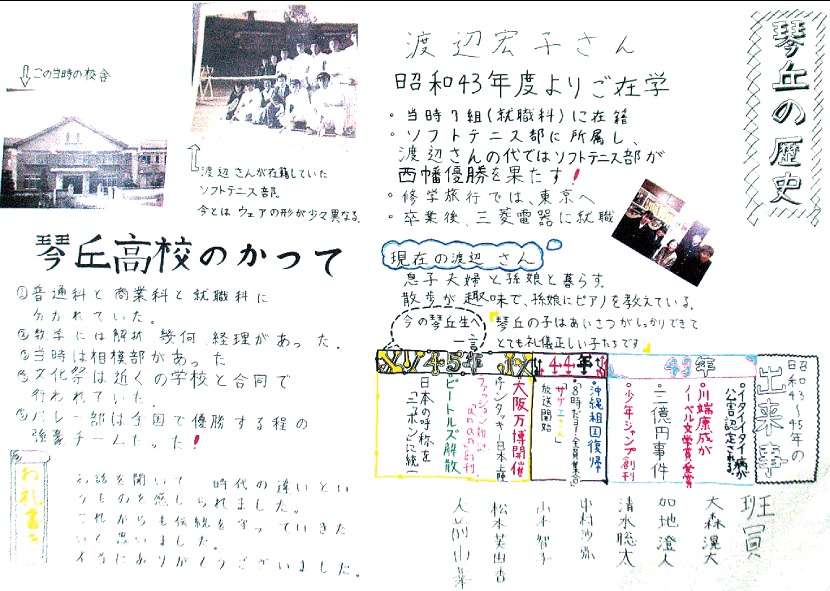 琴丘の歴史
渡辺宏子さん
昭和43年度よりご在学
・当時7組(就職科)に在籍
・ソフトテニス部に所属し、
渡辺さんの代ではソフトテニス部が
西幡優勝を果たす!
・修学旅行では、東京へ
・卒業後、三菱電器に就職
現在の渡辺さん
息子夫婦と孫娘と暮らす。
散歩が趣味で、孫娘にピアノを教えている。
今の琴丘生へ
一言
「琴丘の子はあいさつがしっかりできて
とても礼儀正しい子たちです」
この当時の校舎
渡辺さんが在籍していた
ソフトテニス部。
今とはウェアの形が少々異なる。
琴丘高校のかつて
①普通科と商業科と就職科に
分かれていた。
②数学には解析、幾何、経理があった。
③当時は相撲部があった
④文化祭は近くの学校と合同で
行われていた。
⑤バレー部は全国で優勝する程の
強豪チームだった!
昭和43~45年の
出来事
43年
・イタイイタイ病が
公害認定される。
・川端康成が
ノーベル文学賞受賞
・三億円事件
・少年ジャンプ創刊
44年
・沖縄祖国復帰
・「8時だョ!全員集合」
「サザエさん」
放送開始
45年
・大阪万博開催
・ケンタッキー日本上陸
・ファッション雑誌
「anan」創刊
・ビートルズ解散
・日本の呼称を
「ニッポン」に統一
お礼書き
お話を聞いて 時代の違いとい
うものを感じられました。
これからも伝統を守っていきた
いと思いました。
本当にありがとうございました。
班員
大森滉大
加地澄人
清水聡太
中村沙弥
山本智子
松本芙由香